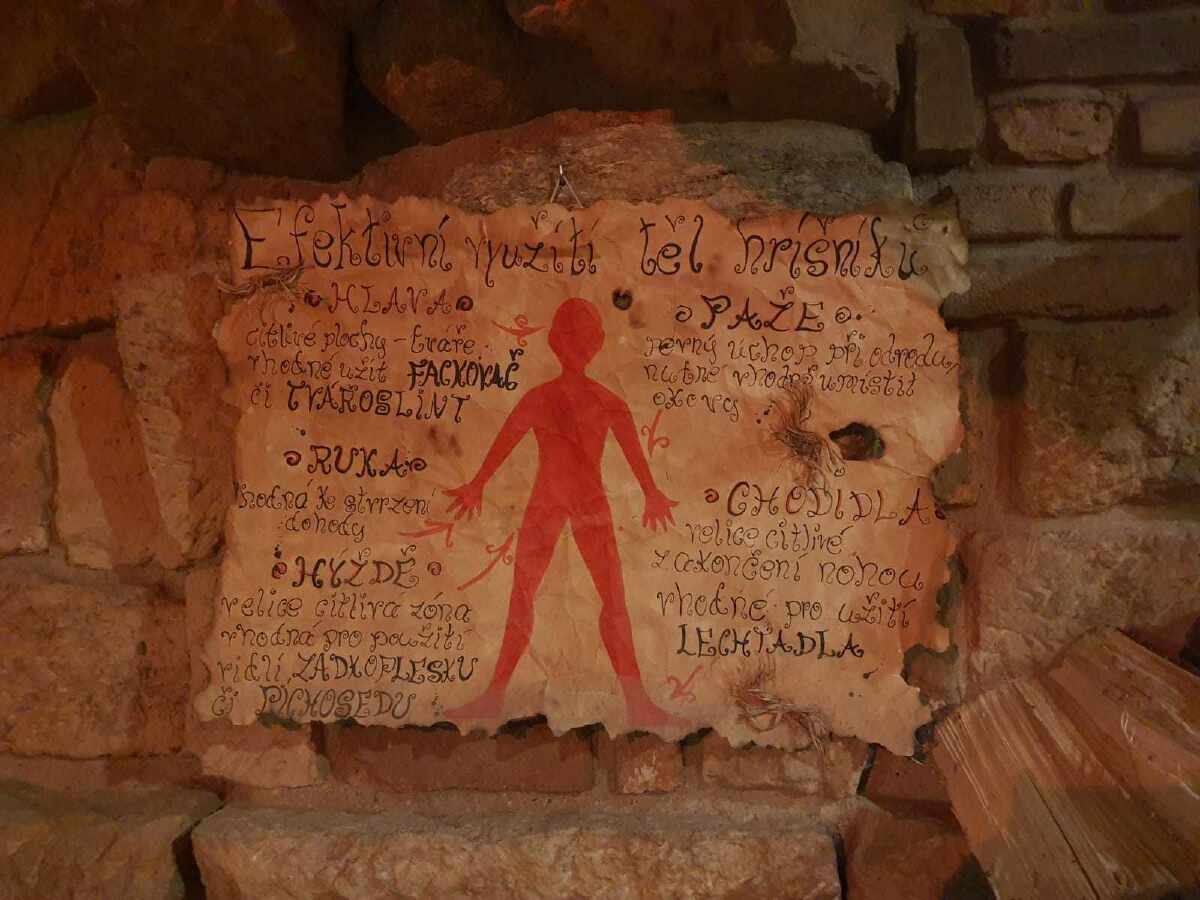 Efektivní využití těl hříšníků
HLAVA
citlivé plochy - tváře.
vhodné užít FACKOVAČ
či TVÁŘOSLINT
RUKA
vhodná ke stvrzení
dohody
HÝŽDĚ
velice citlivá zóna
vhodná pro použití
vidlí, ZADKOPLESKU
či PICHOSEDU
PAŽE
pevný úchop při odvodu,
nutné vhodně umístit
okovy
CHODIDLA
velice citlivé
zakončení nohou
vhodné pro užití
LECHTADLA